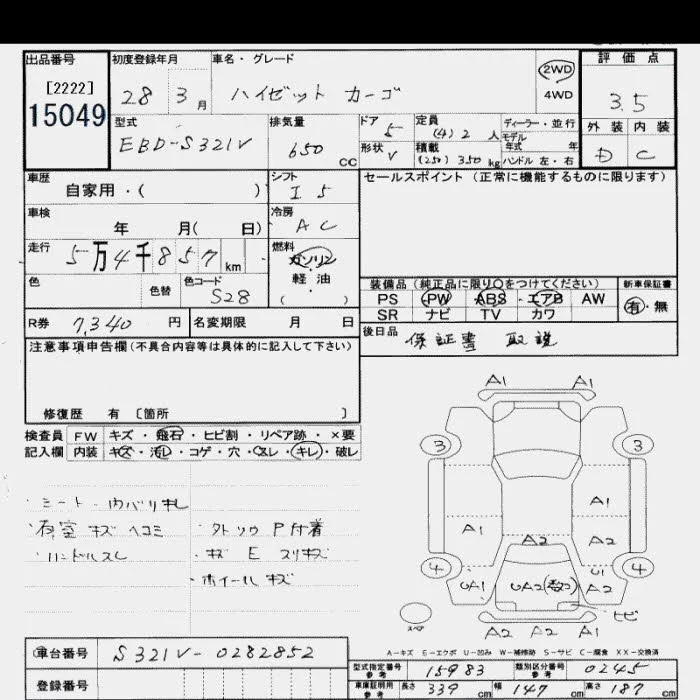 出品番号 初度登録年月 車名・グレード 2WD 評価点
[2222] 28 3月 ハイゼット カーゴ 4WD 3.5
15049 型式 排気量 ドア 5 定員 (4) 2人 ディーラー・並行 外装 内装
EBD-S321V 650 CC 形状 V 積載 (250) 350 kg モデル年式 年 D C
ハンドル 左・右
車歴 シフト セールスポイント(正常に機能するものに限ります)
自家用・( ) I5
車検 冷房
年 月( 日) AC
走行 5万4千857km 燃料
ガソリン
色 色替 色コード S28 軽油
( )
装備品(純正品に限り○をつけてください) 新車保証書
PS PW ABS・エアB AW 有・無
SR ナビ TV カワ
R券 7,340円 名変期限 月 日 後日品 保証書 取説
注意事項申告欄(不具合内容等は具体的に記入して下さい)
修復歴 有 〔箇所 〕
検査員 FW キズ・飛石・ヒビ割・リペア跡・×要
記入欄 内装 キズ・汚レ・コゲ・穴・スレ・キレ・破レ
・シート・内バリ キレ
・荷室 キズ ヘコミ ・外トソウ P付着
・ハンドルスレ ・キズ E スリキズ
・ホイール キズ
A1 A1
3 3
A1
A1 A2 A2
4 4
UA1 UA2 U1 A2
ヒビ
スペア A2 A2 A1
A-キズ E-エクボ U-凹み W-補修跡 S-サビ C-腐食 XX-交換済
車台番号 S321V-0282852
型式指定番号 参考 15983 類別区分番号 参考 0245
登録番号 車庫証明用 参考 長さ 339cm 幅 147cm 高さ 187cm